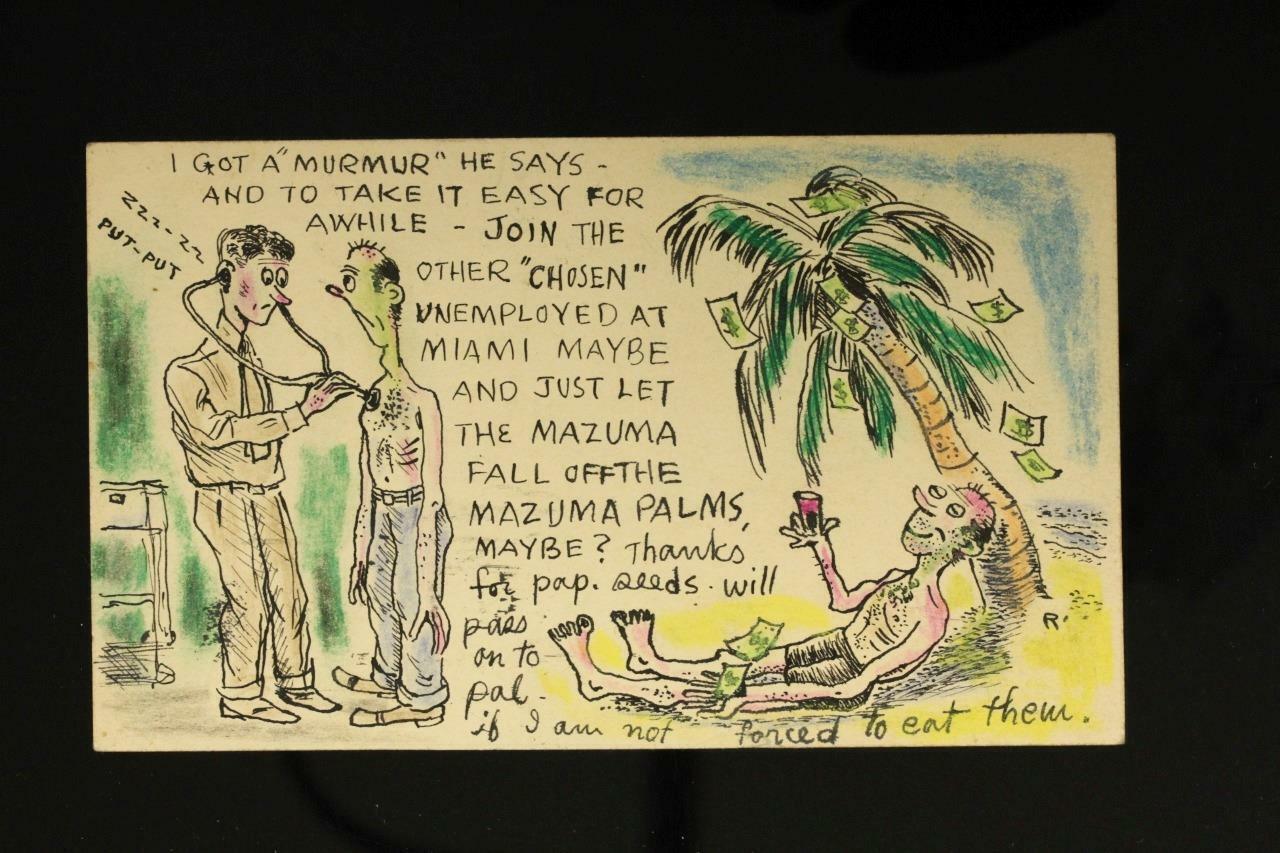 I GOT A "MURMUR" HE SAYS -
AND TO TAKE IT EASY FOR
AWHILE - JOIN THE
ZZZ-ZZ
PUT-PUT
OTHER "CHOSEN"
UNEMPLOYED AT
MIAMI MAYBE
AND JUST LET
THE MAZUMA
FALL OFF THE
MAZUMA PALMS,
MAYBE? Thanks
for pap. seeds. will
pass
on to
pal.
if I am not forced to eat them.
R.
$
$
$
$
$
$
$
$
$